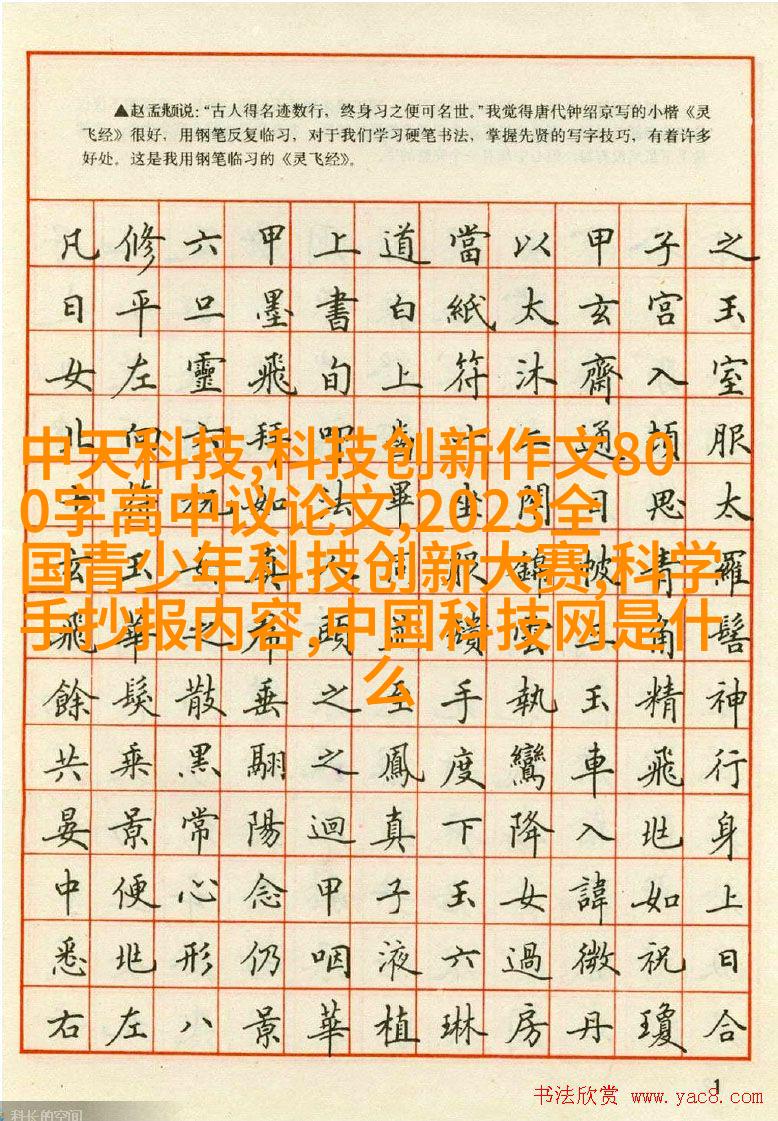 ▲赵孟頫说：“古人得名迹数行，终身习之便可名世。”我觉得唐代钟绍京写的小楷《灵
飞经》很好，用钢笔反复临习，对于我们学习硬笔书法，掌握先贤的写字技巧，有着许多
好处。这是我用钢笔临习的《灵飞经》。
凡修六甲上道當以甲子之
日平旦墨書白紙太玄宮玉
女左靈飛旬上符沐齋入室
北向六拜叩齒十二通頓服
中天科技,科技创新作文80
0字高中议论文,2023全
国青少年科技创新大赛,科学
手抄报内容,中国科技网是什
么
如法畢坐閇目思太
玄玉女真人同服錦帔青羅
飛華之頭並雲三角髻
餘髮散垂之至手執玉精神
共乘黑翮之鳳度鸞車飛行
晏景常陽迴真下降入兆身
中便心念甲子玉女諱如上
悉兆形仍咽液六過微祝曰
右左八景華植琳房丹瓊合
1
书法欣赏 www.yac8.com
科长的空间